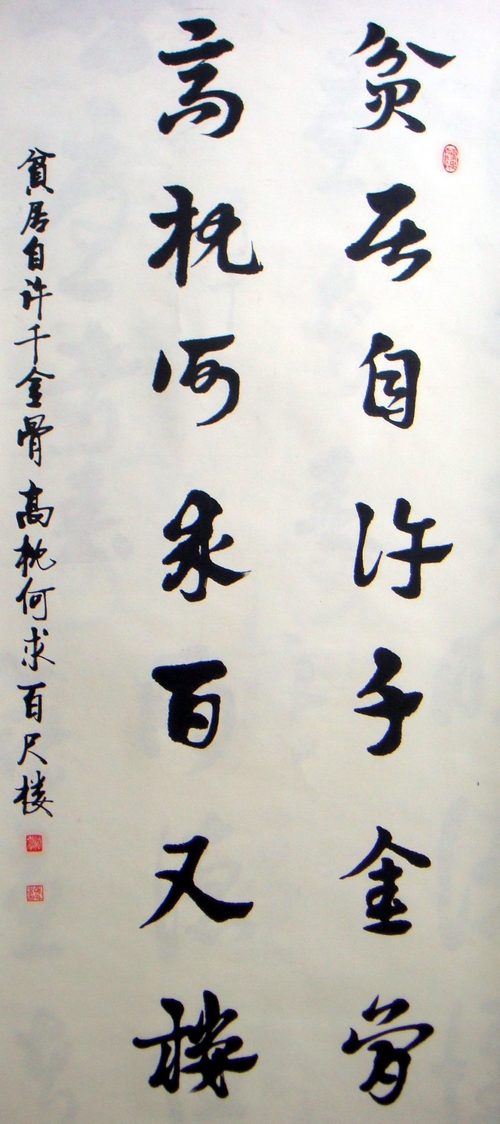 贫居自许千金骨
高枕何求百尺楼
貧居自许千金骨 高枕何求百尺楼